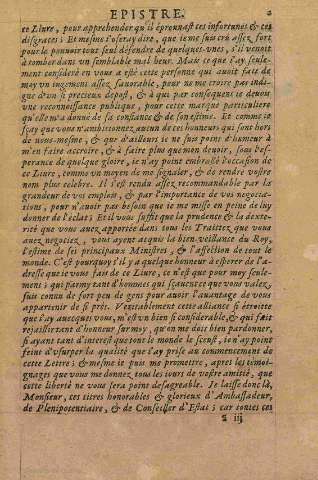 EPISTRE.
ce Liure, pour apprehender qu'il éprouuast ces infortunes & ces
disgraces; Et mesme i'oseray dire, que ie me suis crû assez fort
pour le pouuoir tout seul défendre de quelques-vnes, s'il venoit
à tomber dans vn semblable mal heur. Mais ce que i'ay seule-
ment consideré en vous a esté cette personne qui auoit fait de
moy vn iugement assez fauorable, pour ne me croire pas indi-
gne d'vn si precieux depost, & à qui par consequent ie deuois
vne reconnoissance publique, pour cette marque particuliere
qu'elle m'a donné de sa confiance & de son estime. Et comme ie
sçay que vous n'ambitionnez aucun de ces honneurs qui sont hors
de vous-mesme, & que d'ailleurs ie ne suis point d'humeur à
m'en faire accroire, & à faire plus que mon deuoir, sous l'es-
perance de quelque gloire, ie n'ay point embrassé l'occasion de
ce Liure, comme vn moyen de me signaler, & de rendre vostre
nom plus celebre. Il s'est rendu assez recommandable par la
grandeur de vos emplois, & par l'importance de vos negocia-
tions, pour n'auoir pas besoin que ie me misse en peine de luy
donner de l'éclat; Et il vous suffit que la prudence & la dexte-
rité que vous auez apportée dans tous les Traittez que vous
auez negociez, vous ayent acquis la bien-veillance du Roy,
l'estime de ses principaux Ministres, & l'affection de tout le
monde. C'est pourquoy s'il y a quelque honneur à esperer de l'a-
dresse que ie vous fait de ce Liure, ce n'est que pour moy seule-
ment; qui parmy tant d'hommes qui sçauent ce que vous valez,
suis connu de fort peu de gens pour auoir l'auantage de vous
appartenir de si prés. Veritablement cette alliance si étroitte
que i'ay auecque vous, m'est vn bien si considerable, & qui fait
rejaillir tant d'honneur sur moy, qu'on me doit bien pardonner,
si ayant tant d'interest que tout le monde le sceust, ie n'ay point
feint d'vsurper la qualité que i'ay prise au commencement de
cette Lettre; & mesme ie puis me promettre, apres les témoi-
gnages que vous me donnez tous les iours de vostre amitié, que
cette liberté ne vous sera point desagreable. Je laisse donc là,
Monsieur, ces titres honorables & glorieux d'Ambassadeur,
de Plenipotentiaire, & de Conseiller d'Estat; car toutes ces
ã iij